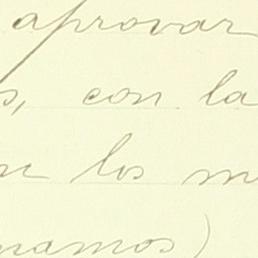 aprovar
s, con la
los m
namos)